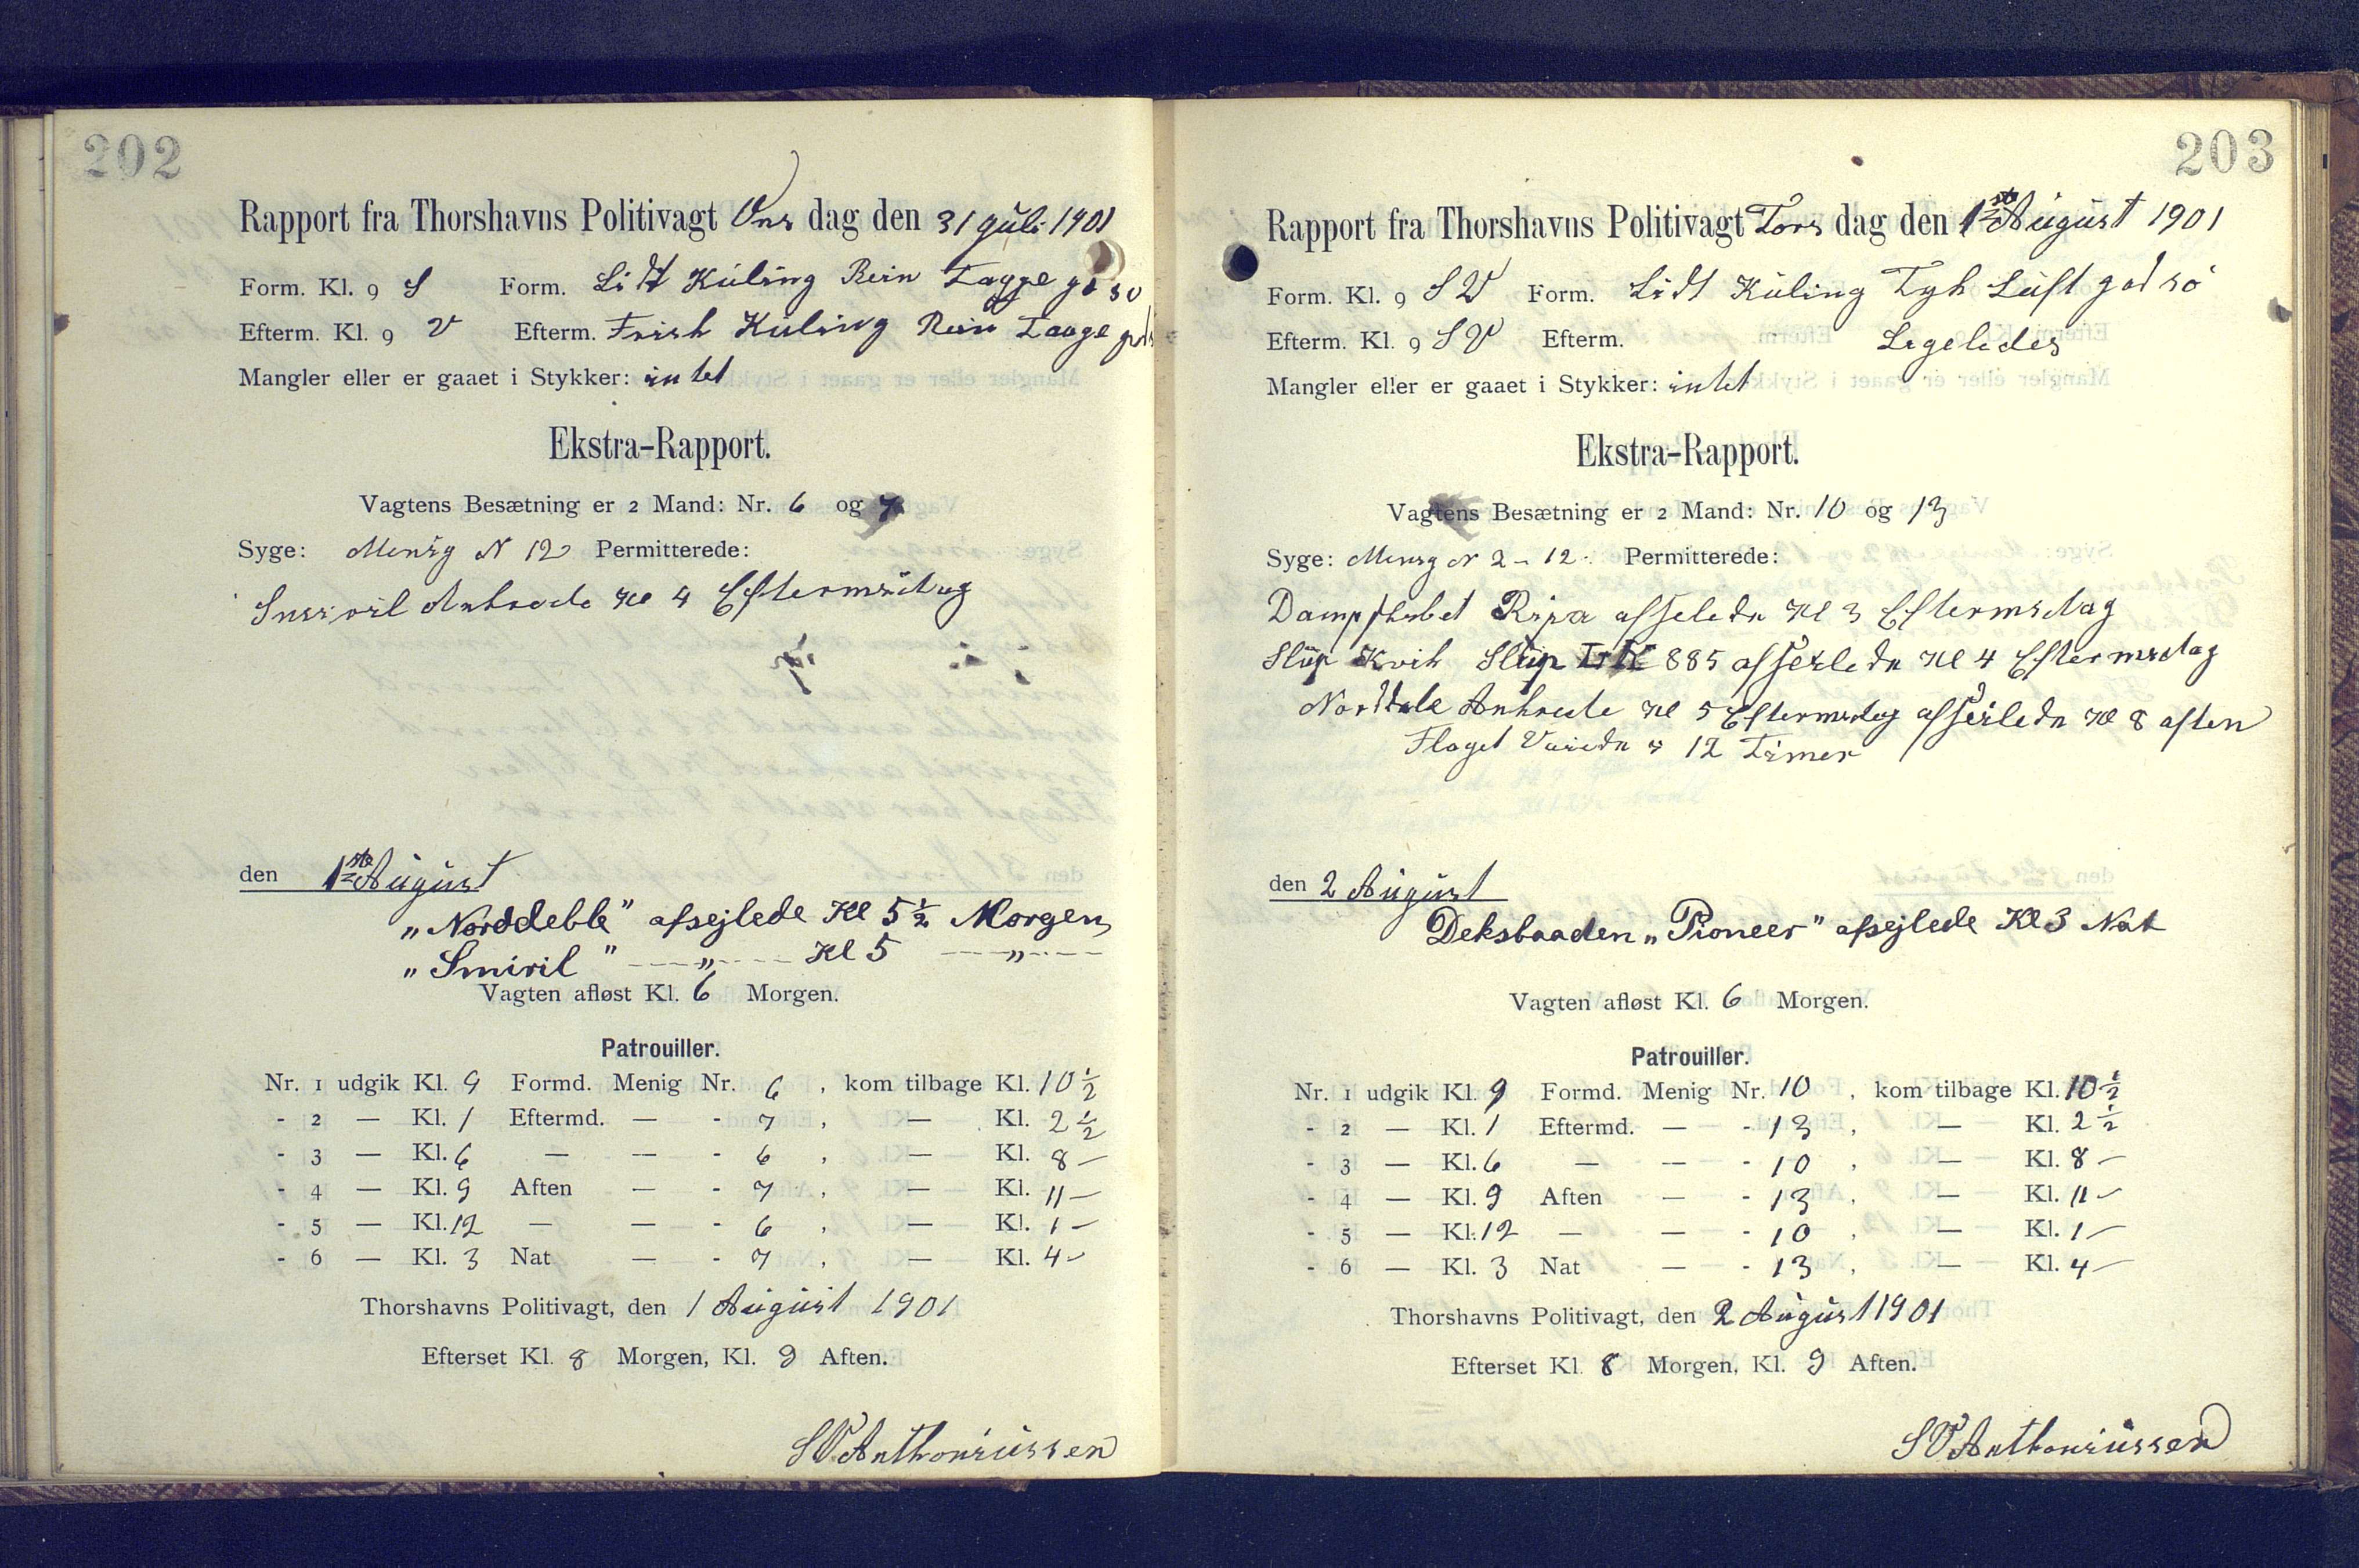 202
Rapport fra Thorshavns Politivagt Ons dag den 31 Juli 1901
Form. Kl. 9 S Form. Lidt Kuling Rein Tagge go so
Efterm. Kl. 9 V Efterm. Frish Kuling Rein Taage
Mangler eller er gaaet i Stykker: intet
Ekstra-Rapport.
Vagtens Besætning er 2 Mand: Nr. 6 og 7
Syge: Menig N 12 Permitterede:
Smiril Ankrede Kl 4 Eftermidag
den 1ste August
"Norddeble" afsejlede Kl 5½ Morgen
"Smiril" — " — Kl 5 — " —
Vagten afløst Kl. 6 Morgen.
Patrouiller.
Nr. 1 udgik Kl. 9 Formd. Menig Nr. 6, kom tilbage Kl. 10½
- 2 — Kl. 1 Eftermd. — - 7, — Kl. 2½
- 3 — Kl. 6 — — - 6, — Kl. 8 —
- 4 — Kl. 9 Aften — - 7, — Kl. 11 —
- 5 — Kl. 12 — — - 6, — Kl. 1 —
- 6 — Kl. 3 Nat — - 7, — Kl. 4 —
Thorshavns Politivagt, den 1 August 1901
Efterset Kl. 8 Morgen, Kl. 9 Aften.
SVAnthoniussen
203
Rapport fra Thorshavns Politivagt Tors dag den 1ste August 1901
Form. Kl. 9 SV Form. Lidt Kuling Tyk Luft god sø
Efterm. Kl. 9 SV Efterm. Ligeledes
Mangler eller er gaaet i Stykker: intet
Ekstra-Rapport.
Vagtens Besætning er 2 Mand: Nr. 10 og 13
Syge: Menig N 2 - 12. Permitterede:
Dampskibet Ripa afseledn Kl 3 Eftermidag
Slup Kvik Slup 885 afseiledn Kl 4 Eftermidag
Ankrede Kl 5 Eftermidag afseiledn Kl 8 aften
Flaget Vaiedn i 12 Timer
den 2 August
Deksbaaden "Pioneer" afsejlede Kl 3 Nat
Vagten afløst Kl. 6 Morgen.
Patrouiller.
Nr. 1 udgik Kl. 9 Formd. Menig Nr. 10, kom tilbage Kl. 10½
- 2 — Kl. 1 Eftermd. — - 13, — Kl. 2½
- 3 — Kl. 6 — — - 10, — Kl. 8 —
- 4 — Kl. 9 Aften — - 13, — Kl. 11 —
- 5 — Kl. 12 — — - 10, — Kl. 1 —
- 6 — Kl. 3 Nat — - 13, — Kl. 4 —
Thorshavns Politivagt, den 2 August 1901
Efterset Kl. 8 Morgen, Kl. 9 Aften.
SVAnthoniussen